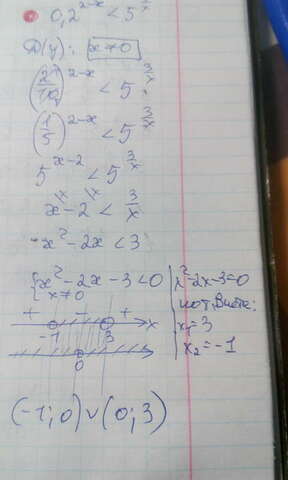 0,2^{2-x} < 5^{3/x}
D(y): x≠0
(2/10)^{2-x} < 5^{3/x}
(1/5)^{2-x} < 5^{3/x}
5^{x-2} < 5^{3/x}
x-2 < 3/x
x²-2x<3
{x²-2x-3<0
x≠0
+ - +
-1 3 x
0
x²-2x-3=0
по т. Виета:
x₁=3
x₂=-1
(-1;0)∪(0;3)